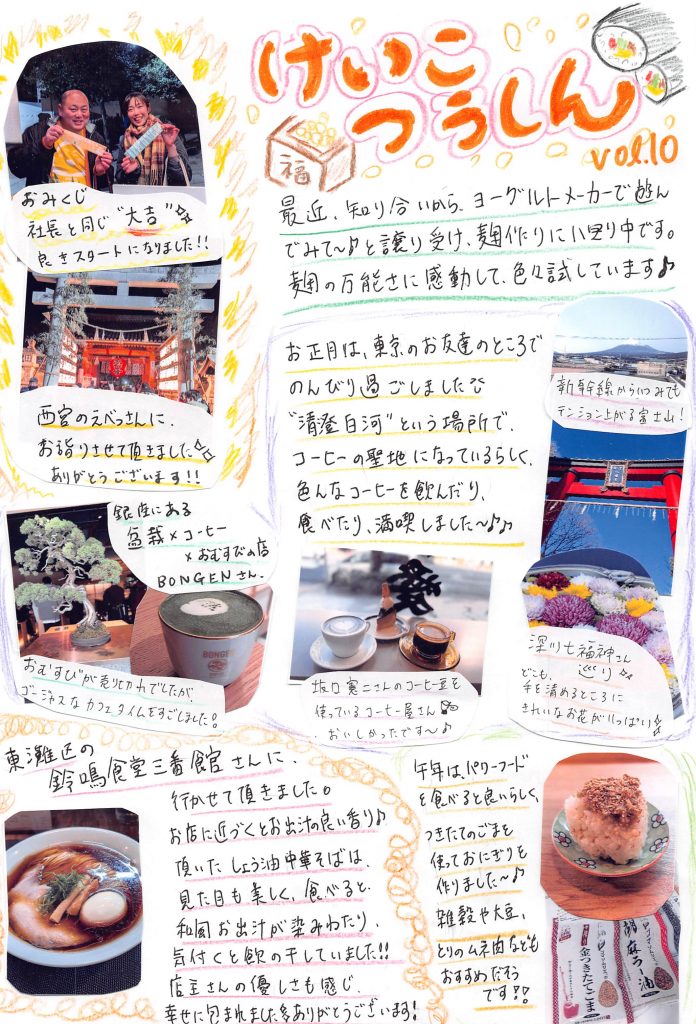 けいこ
つうしん
vol.10
福
最近、知り合いから、ヨーグルトメーカーで遊ん
でみて〜♪と譲り受け、麹作りにハマり中です。
麹の万能さに感動して、色々試しています♪
おみくじ
社長と同じ"大吉"
良きスタートになりました!!
西宮のえべっさんに、
お詣りさせて頂きました
ありがとうございます!!
お正月は、東京のお友達のところで
のんびり過ごしました
"清澄白河"という場所で、
コーヒーの聖地になっているらしく、
色んなコーヒーを飲んだり、
食べたり、満喫しました〜♪♪
新幹線からいつみても
テンション上がる富士山!
銀座にある
盆栽×コーヒー
×おむすびの店
BONGENさん。
BONGEN
おむすびが売り切れでしたが、
ゴージャスなカフェタイムをすごしました!
坂口憲二さんのコーヒー豆を
使っているコーヒー屋さん
おいしかったです〜♪
深川七福神さん
巡り
どこも、
手を清めるところに
きれいなお花がいっぱい
東灘区の
鈴鳴食堂三番館さんに、
行かせて頂きました。
お店に近づくとお出汁の良い香り♪
頂いたしょう油中華そばは、
見た目も美しく、食べると
和風お出汁が染みわたり、
気付くと飲み干していました!!
店主さんの優しさも感じ、
幸せに包まれました ありがとうございます!
午年は、パリーフード
を食べると良いらしく、
つきたてのごまを
使っておにぎりを
作りました〜♪
雑穀や大豆、
とりのムネ肉なども
おすすめだそう
です!!
金つきたてごま
胡麻ラー油